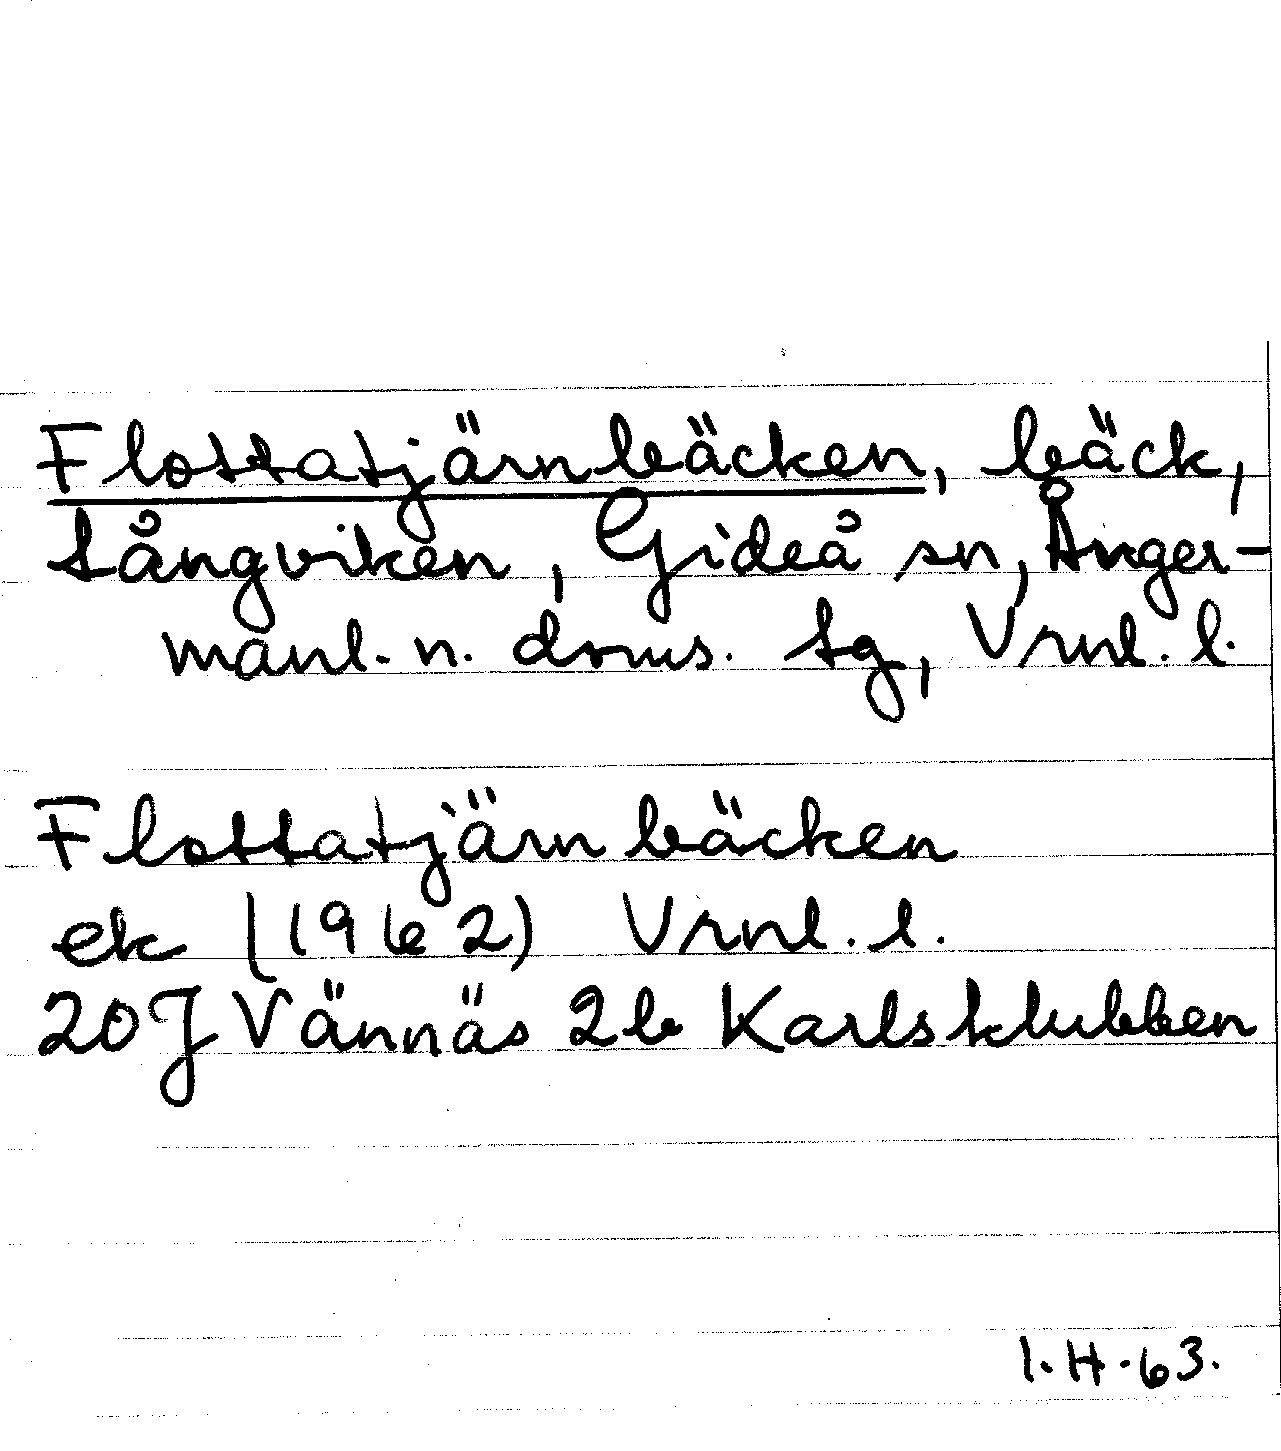 Flottatjärnbäcken, bäck,
Sångviken, Gideå sn, Ånger-
manl. n. doms. Sg, Vrnl. l.
Flottatjärnbäcken
ek (1962) Vrnl. l.
20J Vännäs 2b Karlsklubben
I.H.63.